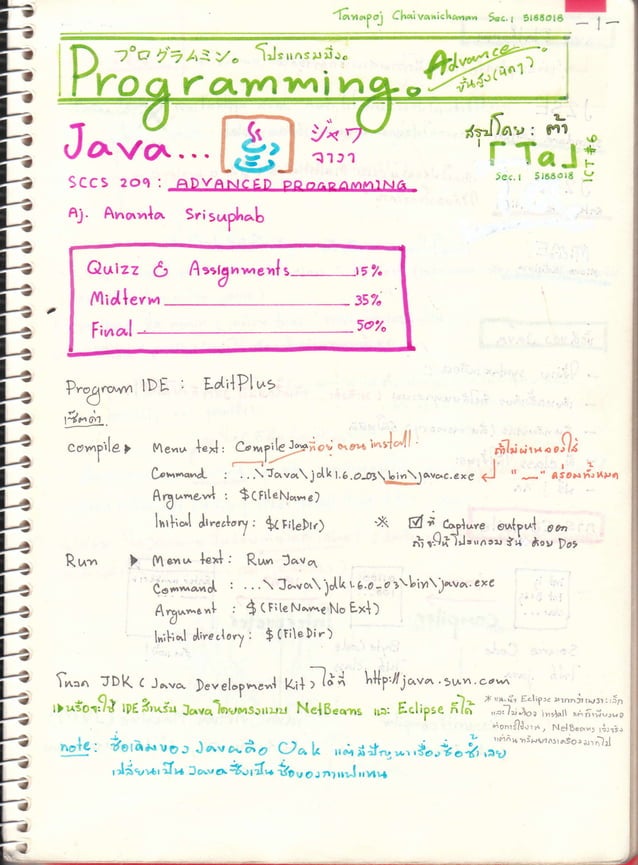 Tanapoj Chaivanichanan Sec.1 5188018
-1-
プログラムミン。 โปรแกรมมิ่ง。
Programming。
Advance
ขั้นสูง(นิดๆ)
Java...
ジャワ
จาวา
สรุปโดย: ต้า
「Ta」
Sec.1 5188018
ICT#6
SCCS 209: ADVANCED PROGRAMMING
Aj. Ananta Srisuphab
Quizz & Assignments 15%
Midterm 35%
Final 50%
Program IDE: EditPlus
เซ็ตค่า
compile Menu text: Compile Java ที่อยู่ตอน install
Command : ...\Java\jdk1.6.0_03\bin\javac.exe
ถ้าไม่ผ่านลองใส่
"__" คร่อมทั้งหมด
Argument : $(FileName)
Initial directory: $(FileDir)
※ ☑ ที่ Capture output ออก
ถ้าจะให้โปรแกรมรัน ด้วย Dos
Run Menu text: Run Java
Command : ...\Java\jdk1.6.0_03\bin\java.exe
Argument : $(FileNameNoExt)
Initial directory: $(FileDir)
โหลด JDK (Java Development Kit) ได้ที่ http://java.sun.com
หรือจะใช้ IDE สำหรับ Java โดยตรงแบบ NetBeans และ Eclipse ก็ได้
※ แนะนำ Eclipse มากกว่าเพราะเล็ก
และไม่ต้อง install แต่ก็เพียงพอ
ต่อการใช้งาน, NetBeans
แต่กินทรัพยากรเครื่องมากไป
note: ชื่อเดิมของ Java คือ Oak แต่มีปัญหาเรื่องชื่อซ้ำ เลย
เปลี่ยนเป็น Java ซึ่งเป็นชื่อของกาแฟแทน